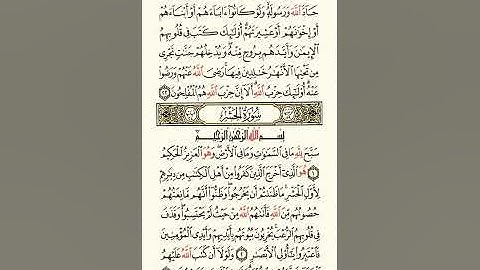 حَآدَّ ٱللَّهَ وَرَسُولَهُۥ وَلَوْ كَانُوٓا۟ ءَابَآءَهُمْ أَوْ أَبْنَآءَهُمْ
أَوْ إِخْوَٰنَهُمْ أَوْ عَشِيرَتَهُمْ أُو۟لَٰٓئِكَ كَتَبَ فِى قُلُوبِهِمُ
ٱلْإِيمَٰنَ وَأَيَّدَهُم بِرُوحٍ مِّنْهُ وَيُدْخِلُهُمْ جَنَّٰتٍ تَجْرِى
مِن تَحْتِهَا ٱلْأَنْهَٰرُ خَٰلِدِينَ فِيهَا رَضِىَ ٱللَّهُ عَنْهُمْ وَرَضُوا۟
عَنْهُ أُو۟لَٰٓئِكَ حِزْبُ ٱللَّهِ أَلَآ إِنَّ حِزْبَ ٱللَّهِ هُمُ ٱلْمُفْلِحُونَ ٢٢
سُورَةُ الْحَشْرِ
بِسْمِ ٱللَّهِ ٱلرَّحْمَٰنِ ٱلرَّحِيمِ
سَبَّحَ لِلَّهِ مَا فِى ٱلسَّمَٰوَٰتِ وَمَا فِى ٱلْأَرْضِ وَهُوَ ٱلْعَزِيزُ ٱلْحَكِيمُ
١ هُوَ ٱلَّذِىٓ أَخْرَجَ ٱلَّذِينَ كَفَرُوا۟ مِنْ أَهْلِ ٱلْكِتَٰبِ مِن دِيَٰرِهِمْ
لِأَوَّلِ ٱلْحَشْرِ مَا ظَنَنتُمْ أَن يَخْرُجُوا۟ وَظَنُّوٓا۟ أَنَّهُم مَّانِعَتُهُمْ
حُصُونُهُم مِّنَ ٱللَّهِ فَأَتَىٰهُمُ ٱللَّهُ مِنْ حَيْثُ لَمْ يَحْتَسِبُوا۟ وَقَذَفَ
فِى قُلُوبِهِمُ ٱلرُّعْبَ يُخْرِبُونَ بُيُوتَهُم بِأَيْدِيهِمْ وَأَيْدِى ٱلْمُؤْمِنِينَ
فَٱعْتَبِرُوا۟ يَٰٓأُو۟لِى ٱلْأَبْصَٰرِ ٢ وَلَوْلَآ أَن كَتَبَ ٱللَّهُ عَلَيْهِمُ